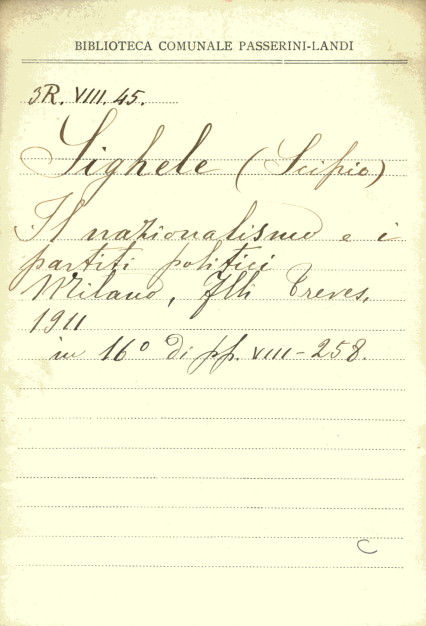 BIBLIOTECA COMUNALE PASSERINI-LANDI
3R. VIII. 45.
Sighele (Scipio)
Il nazionalismo e i
partiti politici
Milano, Flli Treves,
1911
in 16° di pp. VIII-258.
C